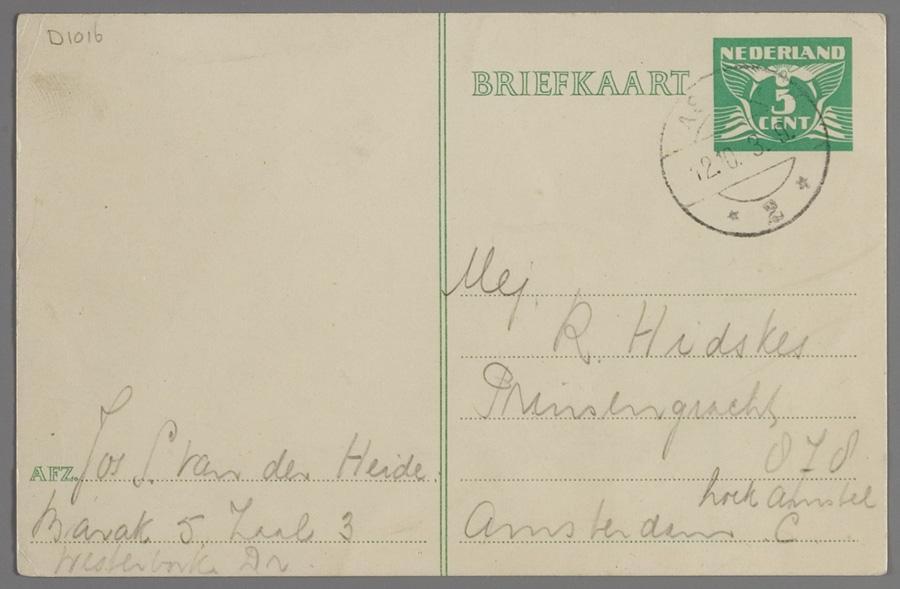 D1016
BRIEFKAART
NEDERLAND
5
CENT
12.10.3.
2
Mej.
R. Hidskes
Prinsengracht
878
hoek Amstel
Amsterdam C
AFZ. Jos S. van der Heide.
Barak 5. Zaal 3
Westerbork Dr.